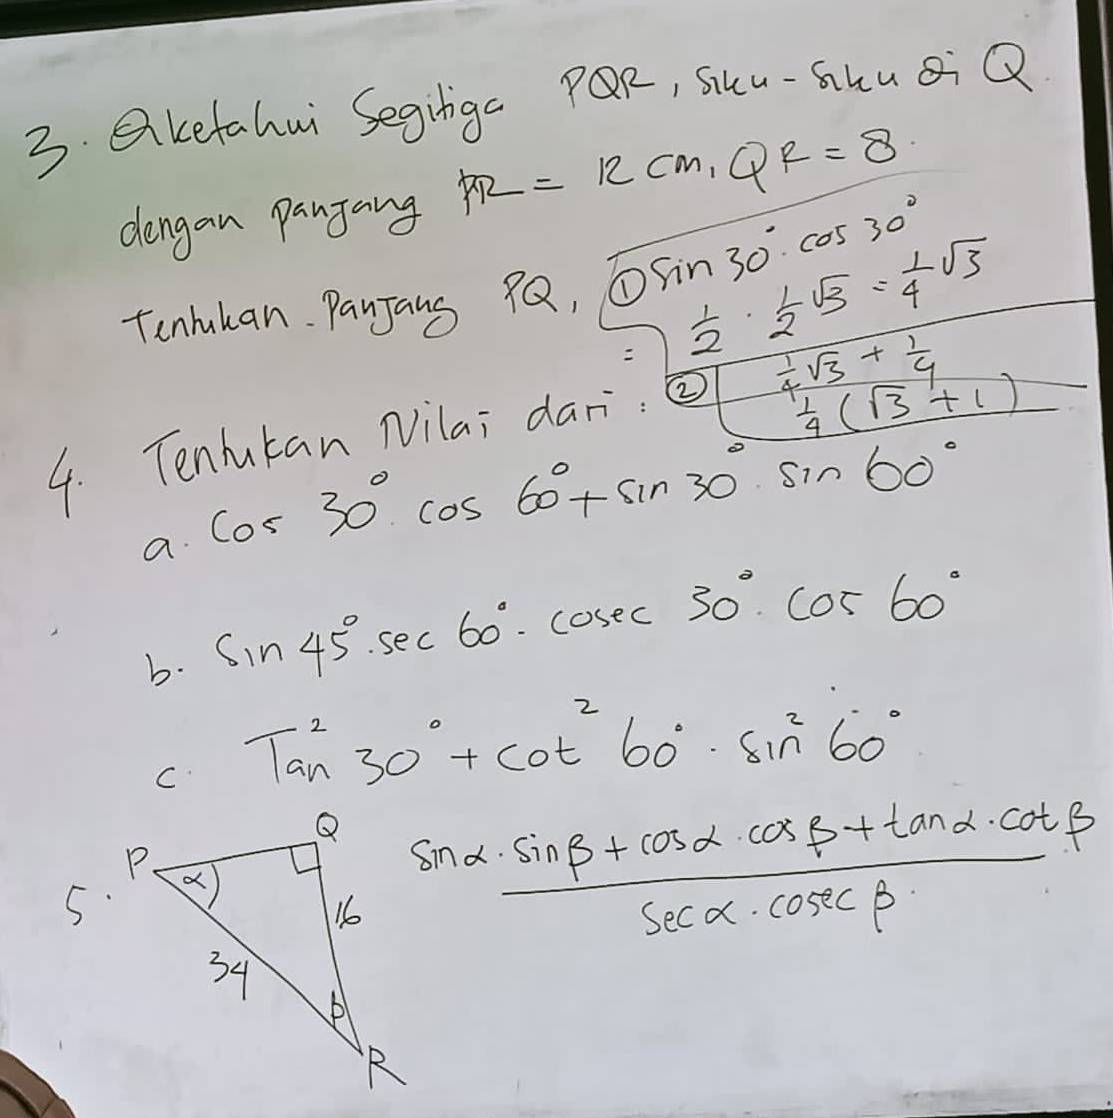 3. Diketahui Segitiga PQR, siku-siku di Q
dengan panjang PR = 12 cm, QR = 8.
Tentukan panjang PQ,
① sin 30° . cos 30°
= 1/2 . 1/2 √3 = 1/4 √3
② 1/4 √3 + 1/4
1/4 (√3 + 1)
4. Tentukan Nilai dari :
a. Cos 30° . cos 60° + sin 30° . sin 60°
b. Sin 45° . sec 60° . cosec 30° . cos 60°
c. Tan² 30° + cot² 60° . sin² 60°
5. P Q R α β 34 16
sin α . sin β + cos α . cos β + tan α . cot β
sec α . cosec β